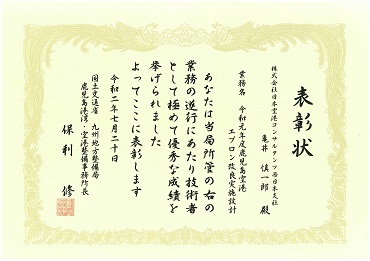 表彰状
株式会社日本空港コンサルタンツ西日本支社
亀井 慎一郎 殿
業務名 令和元年度鹿児島空港
エプロン改良実施設計
あなたは当局所管の右の
業務の遂行にあたり技術者
として極めて優秀な成績を
挙げられました
よってここに表彰します
令和二年七月二十日
国土交通省 九州地方整備局
鹿児島港湾・空港整備事務所長
保利 修